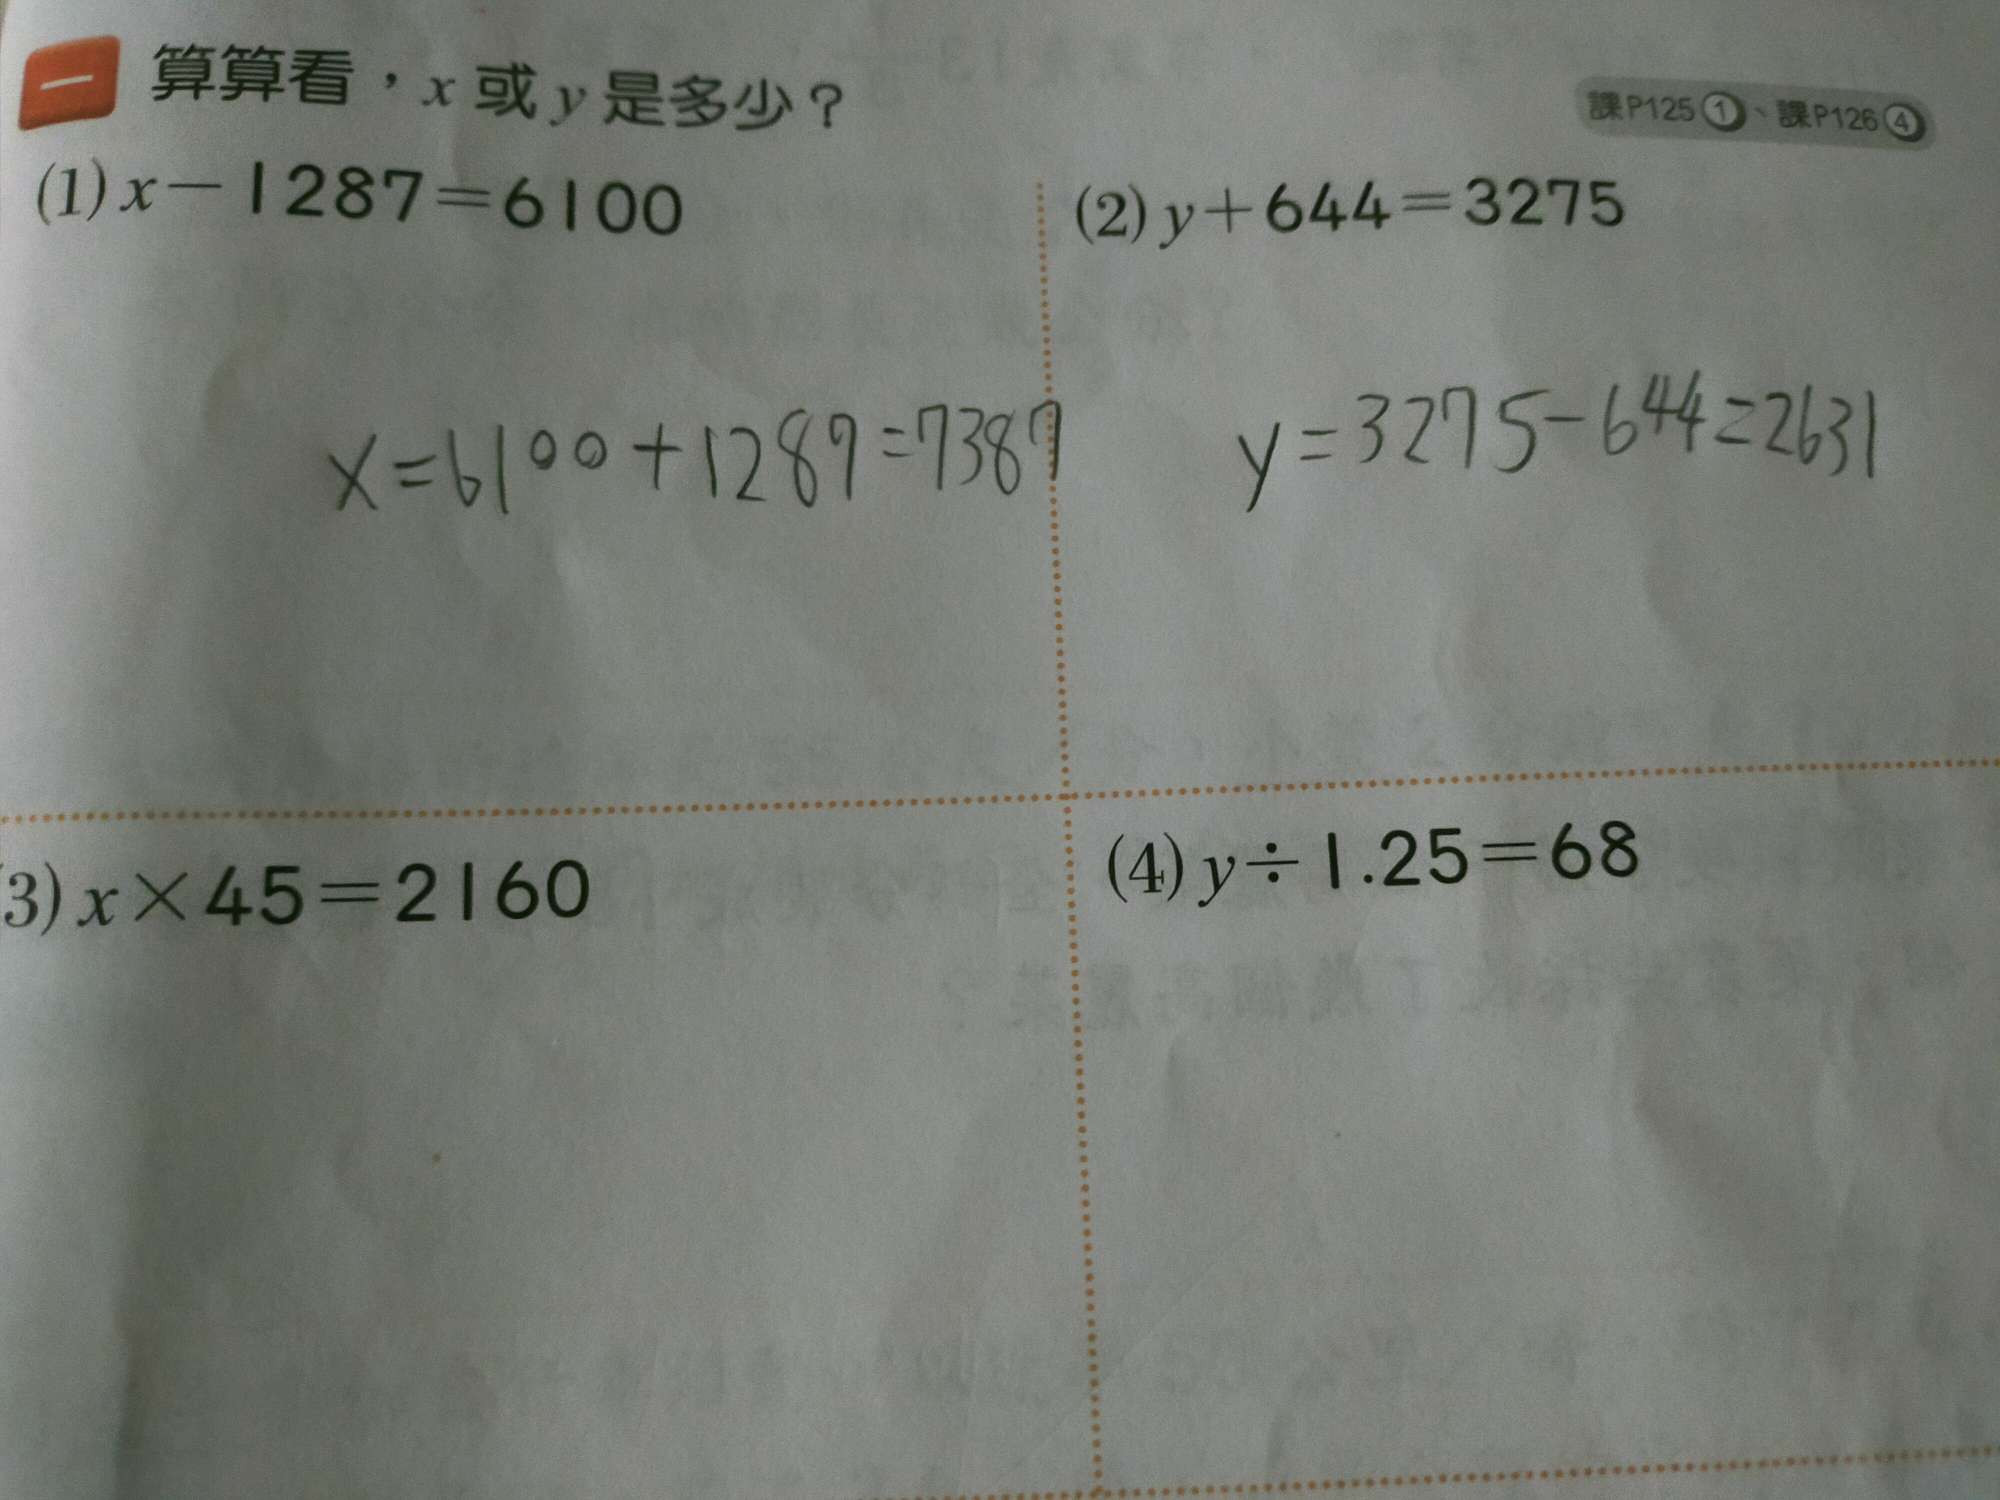 一 算算看，x 或 y 是多少？
課P125①、課P126④
(1) x－1287＝6100
(2) y＋644＝3275
x=6100+1287=7387
y=3275-644=2631
3) x×45＝2160
(4) y÷1.25＝68